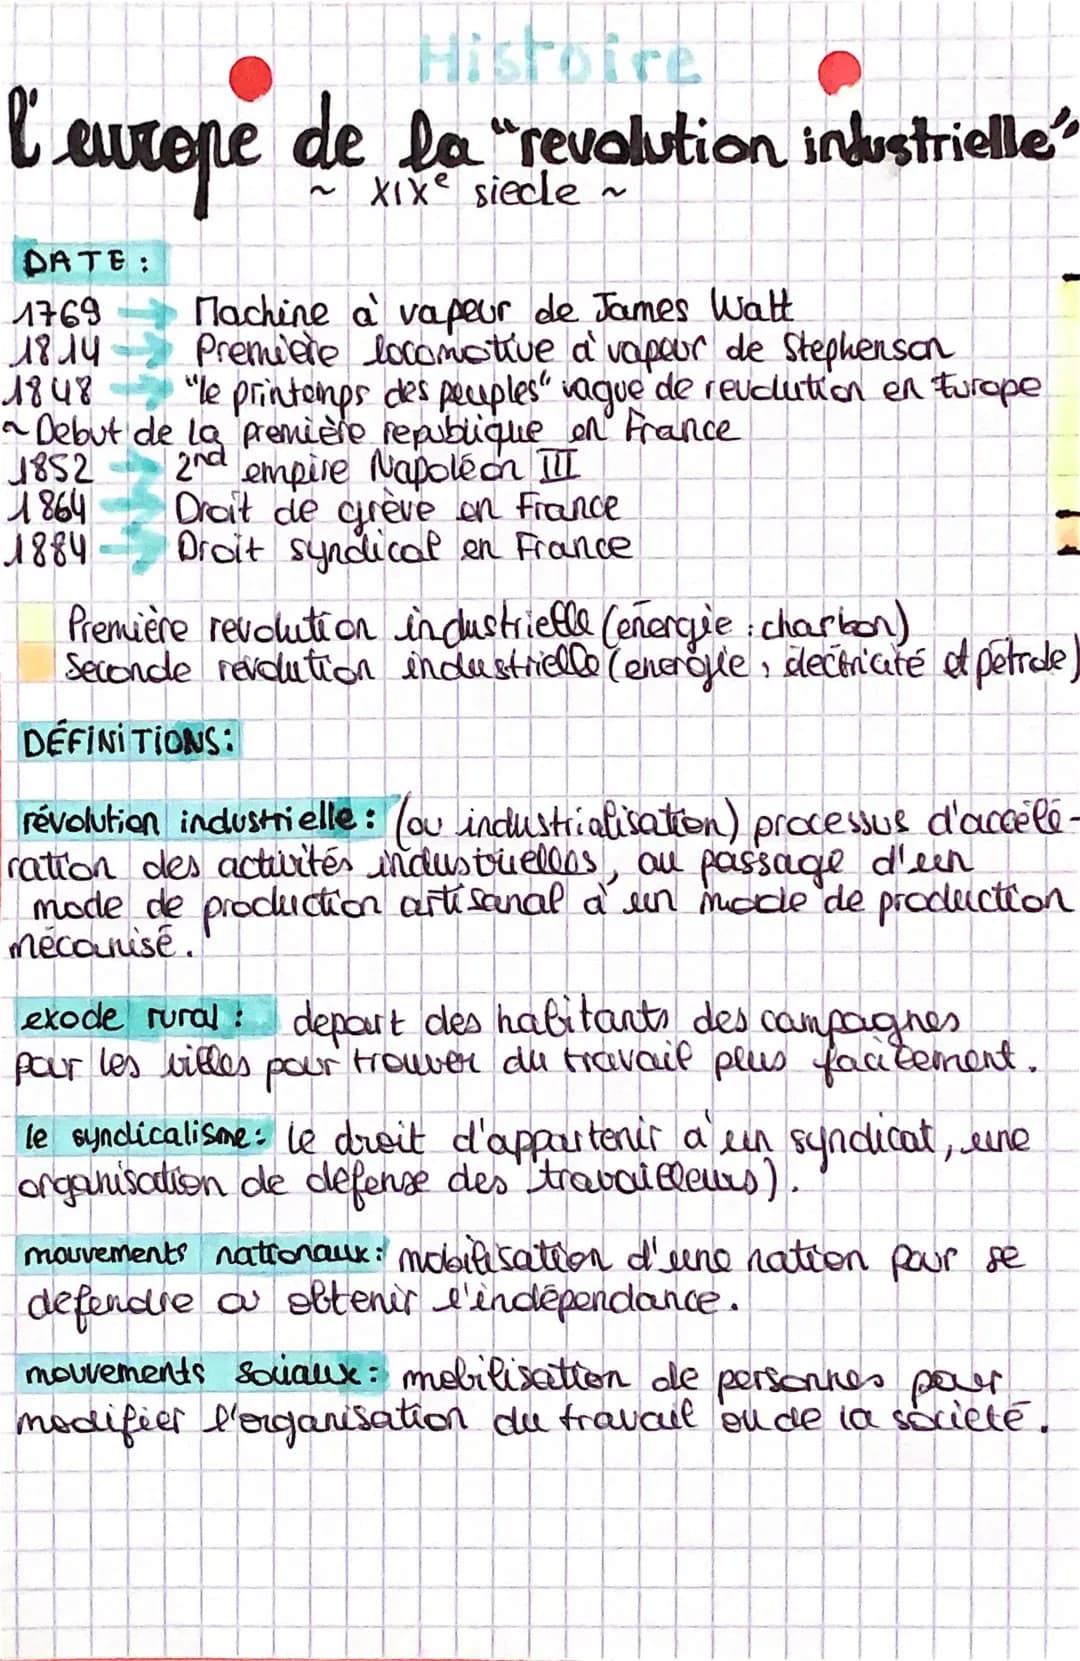 Histoire
l'europe de la "revolution industrielle"
~ XIXe siecle ~
DATE :
1769 → Machine à vapeur de James Watt
1814 → Première locomotive à vapeur de Stephenson
1848 → "le printemps des peuples" vague de revolution en Europe
~ Debut de la première republique en France
1852 → 2nd empire Napoléon III
1864 → Droit de grève en France
1884 → Droit syndical en France
Première revolution industrielle (énergie : charbon)
Seconde revolution industrielle (énergie, électricité et pétrole)
DÉFINITIONS :
révolution industrielle : (ou industrialisation) processus d'accélé-
ration des activités industrielles, au passage d'un
mode de production artisanal à un mode de production
mécanisé.
exode rural : depart des habitants des campagnes
pour les villes pour trouver du travail plus facilement.
le syndicalisme : le droit d'appartenir à un syndicat, une
organisation de défense des travailleurs).
mouvements nationaux : mobilisation d'une nation pour se
défendre ou obtenir l'indépendance.
mouvements sociaux : mobilisation de personnes pour
modifier l'organisation du travail ou de la société.